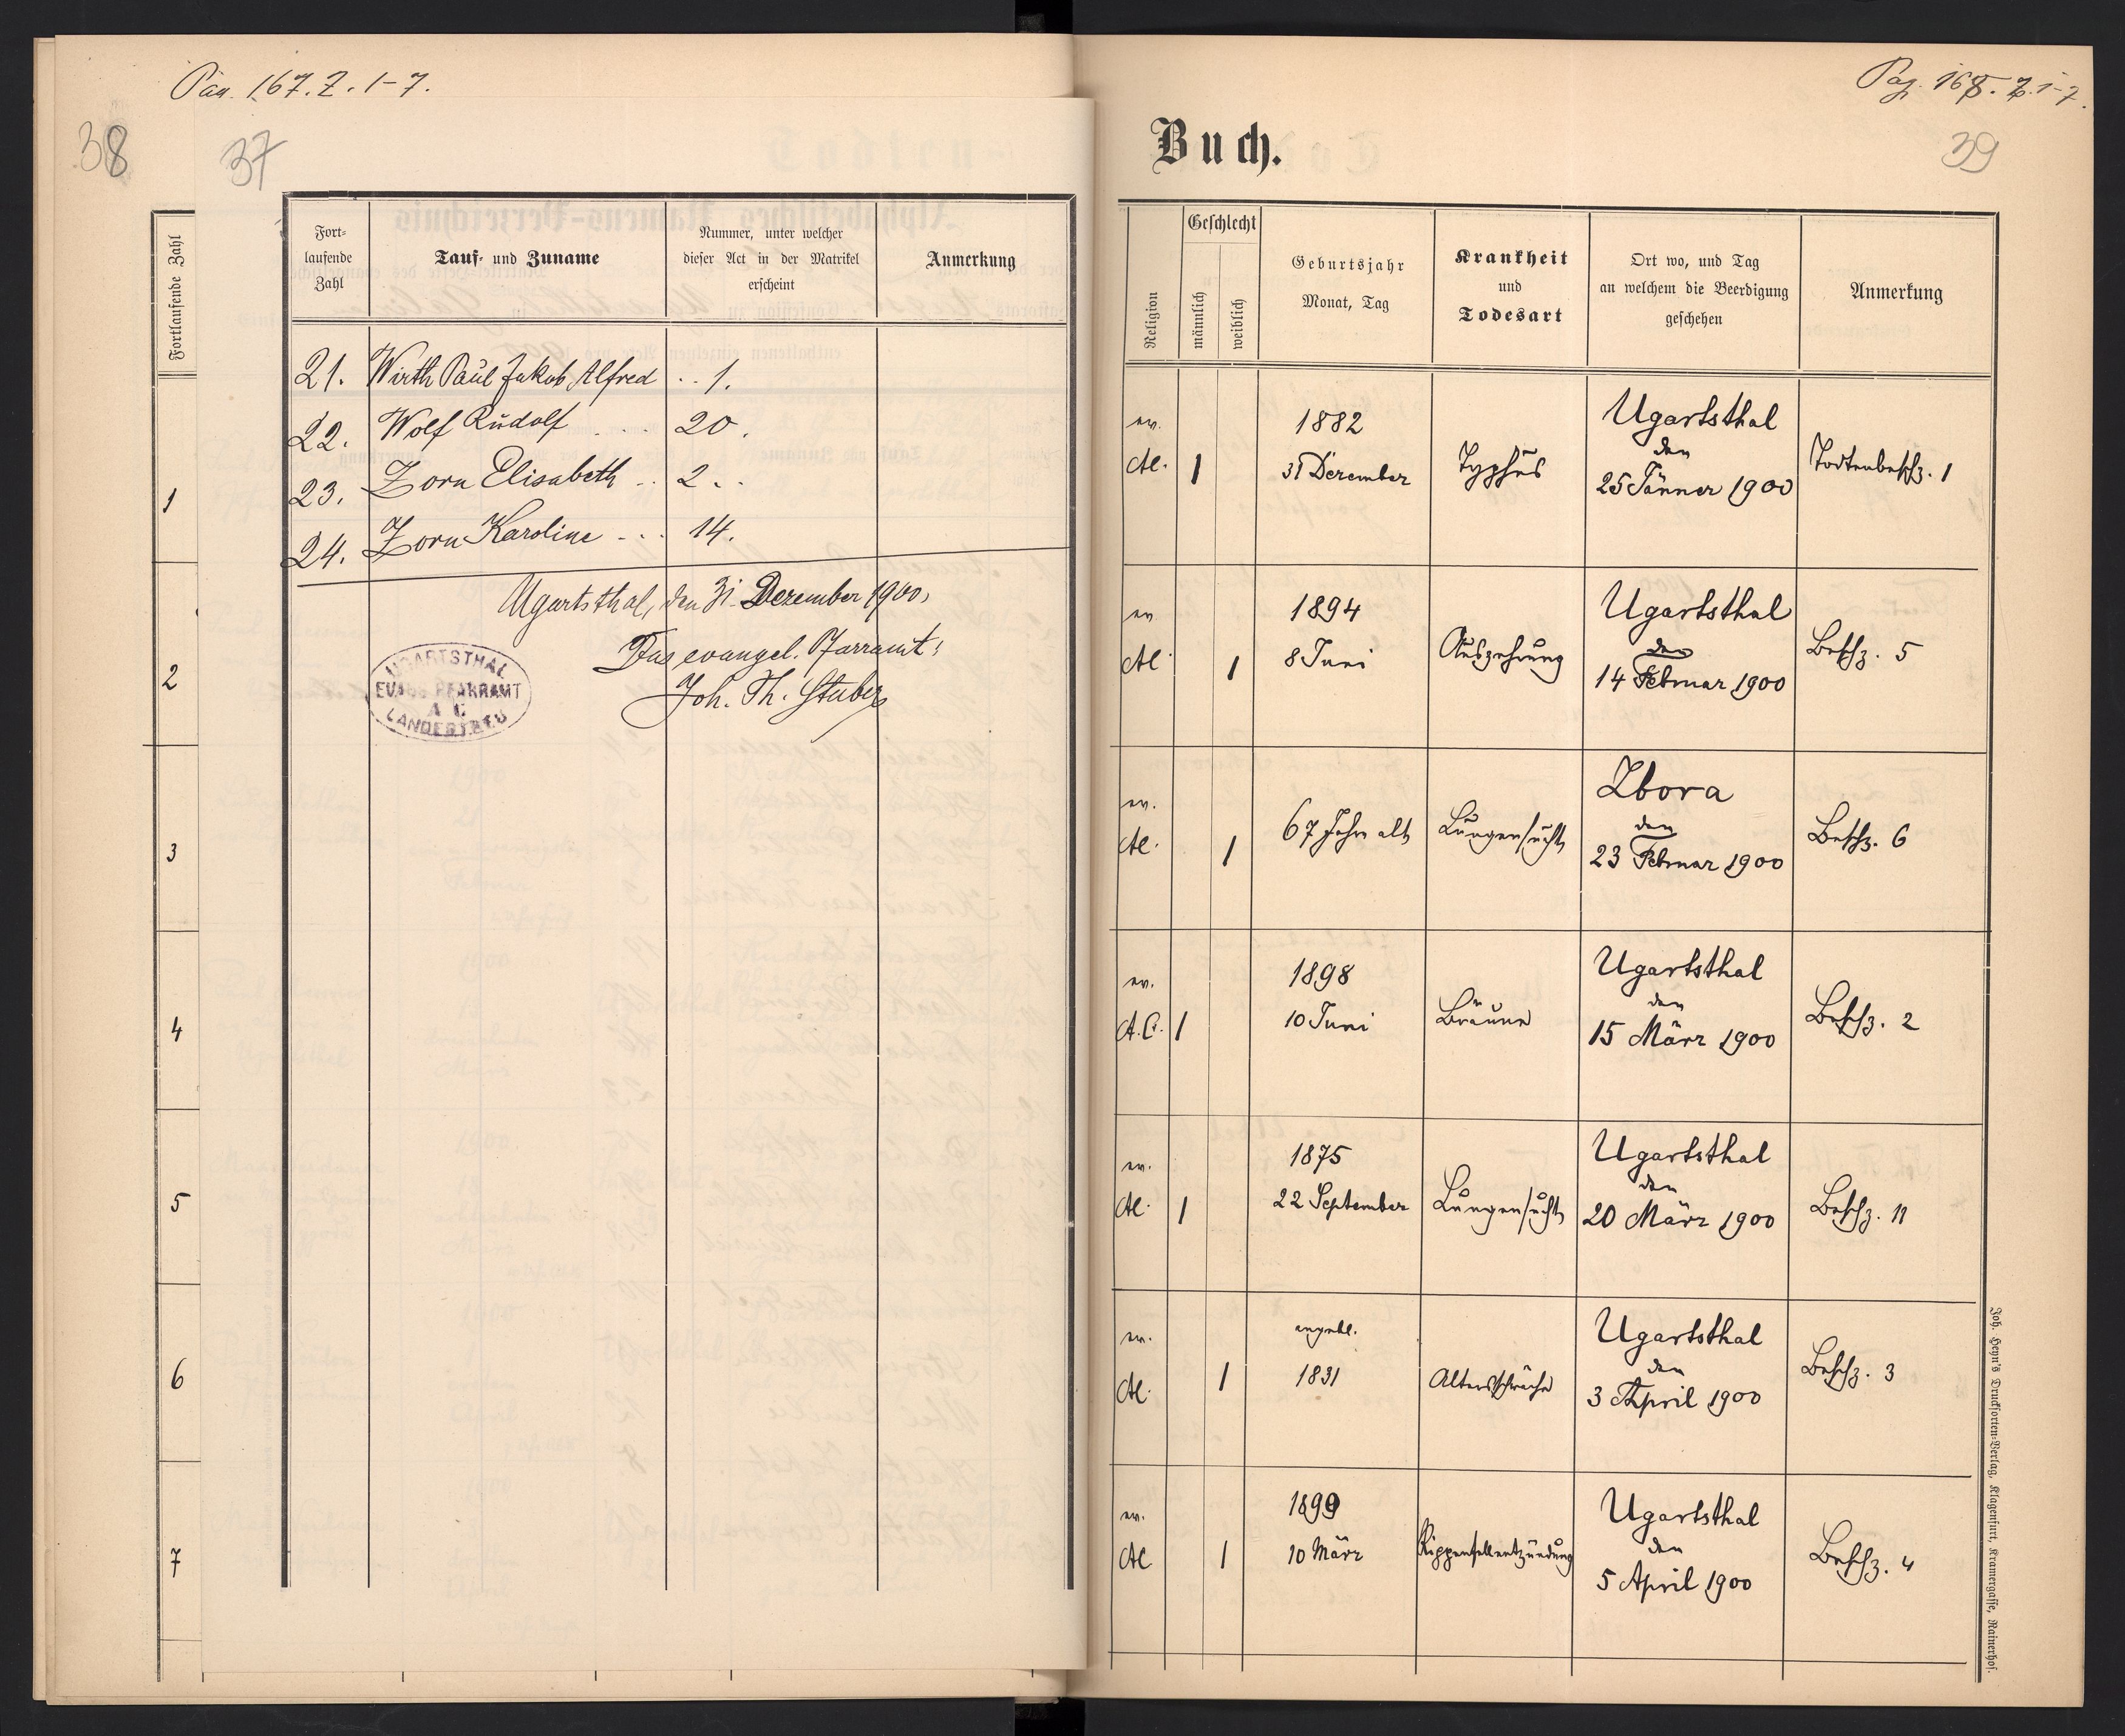 Pag. 167. Z. 1-7.
38
37
Fortlaufende Zahl
1
2
3
4
5
6
7
Fort-
laufende
Zahl
Tauf- und Zuname
Nummer, unter welcher
dieser Act in der Matrikel
erscheint
Anmerkung
21. Wirth Paul Jakob Alfred .. 1.
22. Wolf Rudolf .... 20.
23. Zorn Elisabeth .. 2..
24. Zorn Karoline ... 14.
Ugartsthal, den 31. Dezember 1900.
Das evangel. Pfarramt:
Joh. Th. Stuber
UGARTSTHAL
EVANG PFARRAMT
A C
Pag. 168. Z. 1-7.
39
Buch.
Religion
Geschlecht
männlich
weiblich
Geburtsjahr
Monat, Tag
Krankheit
und
Todesart
Ort wo, und Tag
an welchem die Beerdigung
geschehen
Anmerkung
ev. 1882 Ugartsthal
den
AC. 1 31 Dezember Typhus 25 Jänner 1900 Todtenbschz. 1
ev 1894 Ugartsthal
den
AC. 1 8 Juni Auszehrung 14 Februar 1900 Bschz. 5
ev. Zbora
den
AC. 1 67 Jahre alt Lungensucht 23 Februar 1900 Bschz. 6
ev. 1898 Ugartsthal
den
A.C. 1 10 Juni Bräune 15 März 1900 Bschz. 2
ev. 1875 Ugartsthal
den
AC. 1 22 September Lungensucht 20 März 1900 Bschz. 11
ev. angebl. Ugartsthal
den
AC. 1 1831 Altersschwäche 3 April 1900 Bschz. 3
ev. 1899 Ugartsthal
den
AC 1 10 März Rippenfellentzündung 5 April 1900 Bschz. 4
Joh. Heyn's Drucksorten-Verlag, Klagenfurt, Kramergasse, Rainerhof.